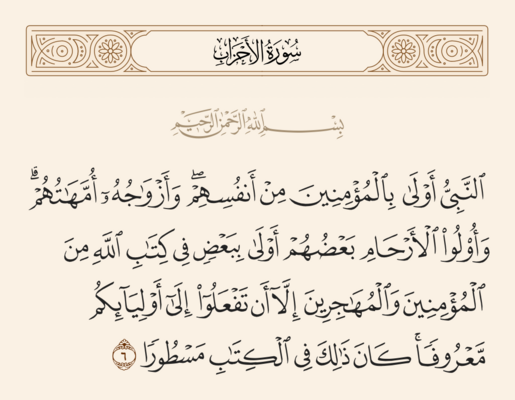 سُورَةُ الأَحْزَابِ
بِسْمِ اللَّهِ الرَّحْمَٰنِ الرَّحِيمِ
ٱلنَّبِيُّ أَوْلَىٰ بِٱلْمُؤْمِنِينَ مِنْ أَنفُسِهِمْۖ وَأَزْوَٰجُهُۥٓ أُمَّهَٰتُهُمْۗ
وَأُو۟لُوا۟ ٱلْأَرْحَامِ بَعْضُهُمْ أَوْلَىٰ بِبَعْضٍ فِى كِتَٰبِ ٱللَّهِ مِنَ
ٱلْمُؤْمِنِينَ وَٱلْمُهَٰجِرِينَ إِلَّآ أَن تَفْعَلُوٓا۟ إِلَىٰٓ أَوْلِيَآئِكُم
مَّعْرُوفًاۚ كَانَ ذَٰلِكَ فِى ٱلْكِتَٰبِ مَسْطُورًا ٦